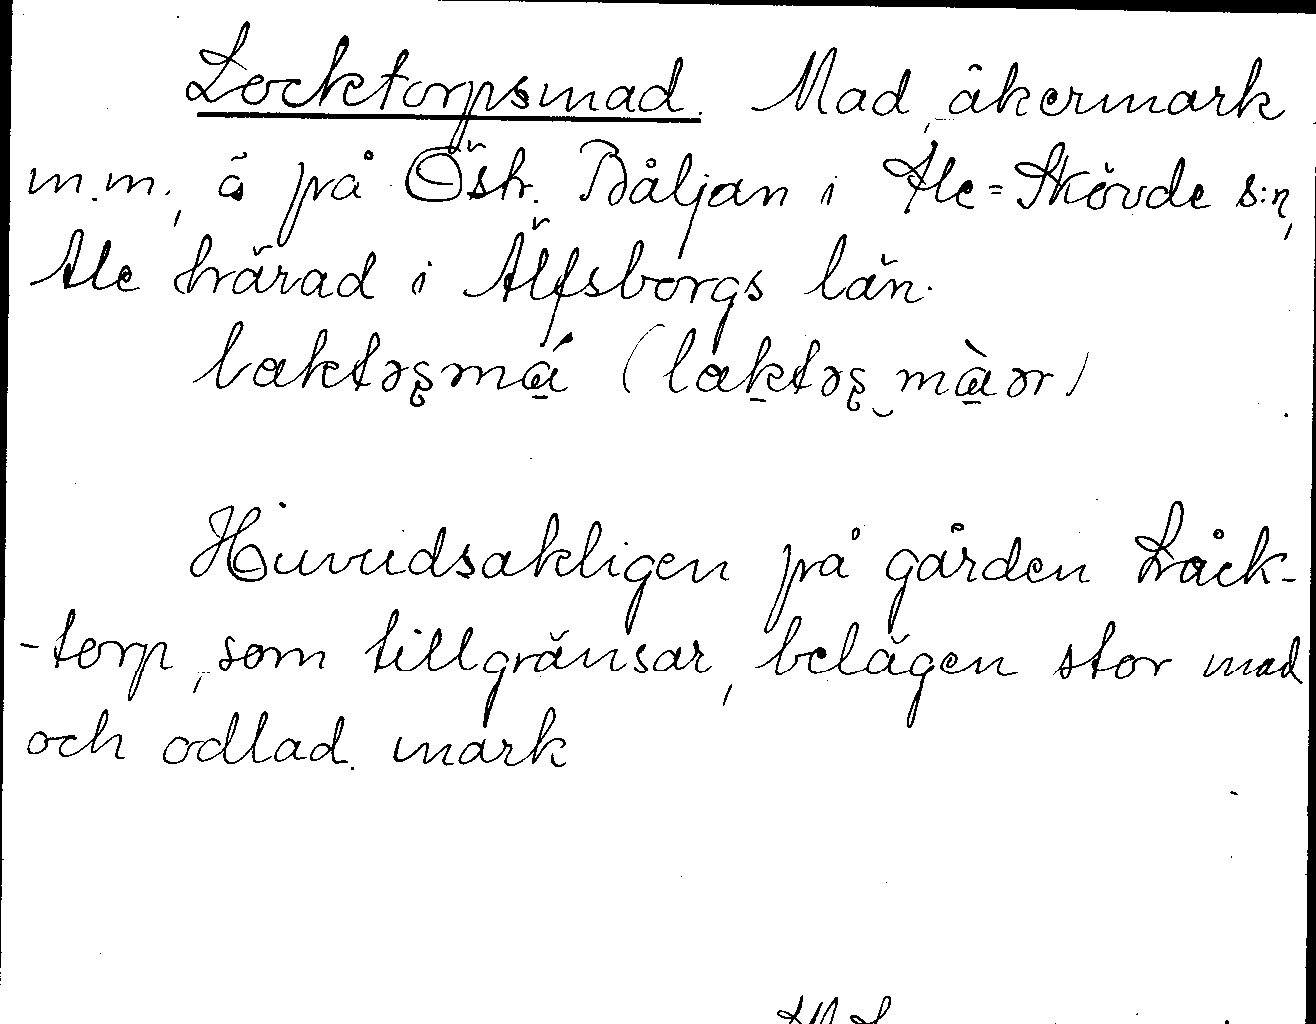 Locktorpsmad. Mad, åkermark
m.m., å på Östr. Båljan i Ale=Skövde s:n,
Ale härad i Älfsborgs län.
laktəʂmá (laktəʂ‿màər)
Huvudsakligen på gården Låck-
-torp, som tillgränsar, belägen stor mad
och odlad mark